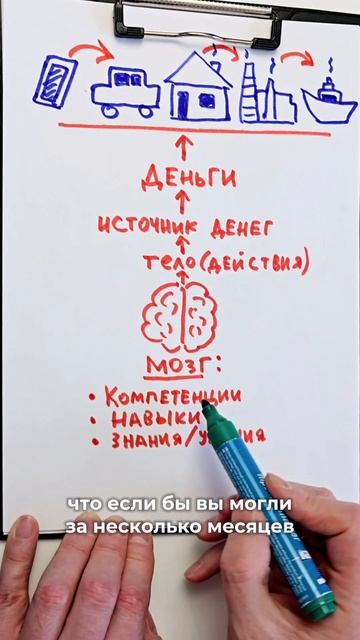 Деньги
источник денег
тело (действия)
мозг:
• Компетенции
• навыки
• знания/умения
что если бы вы могли
за несколько месяцев